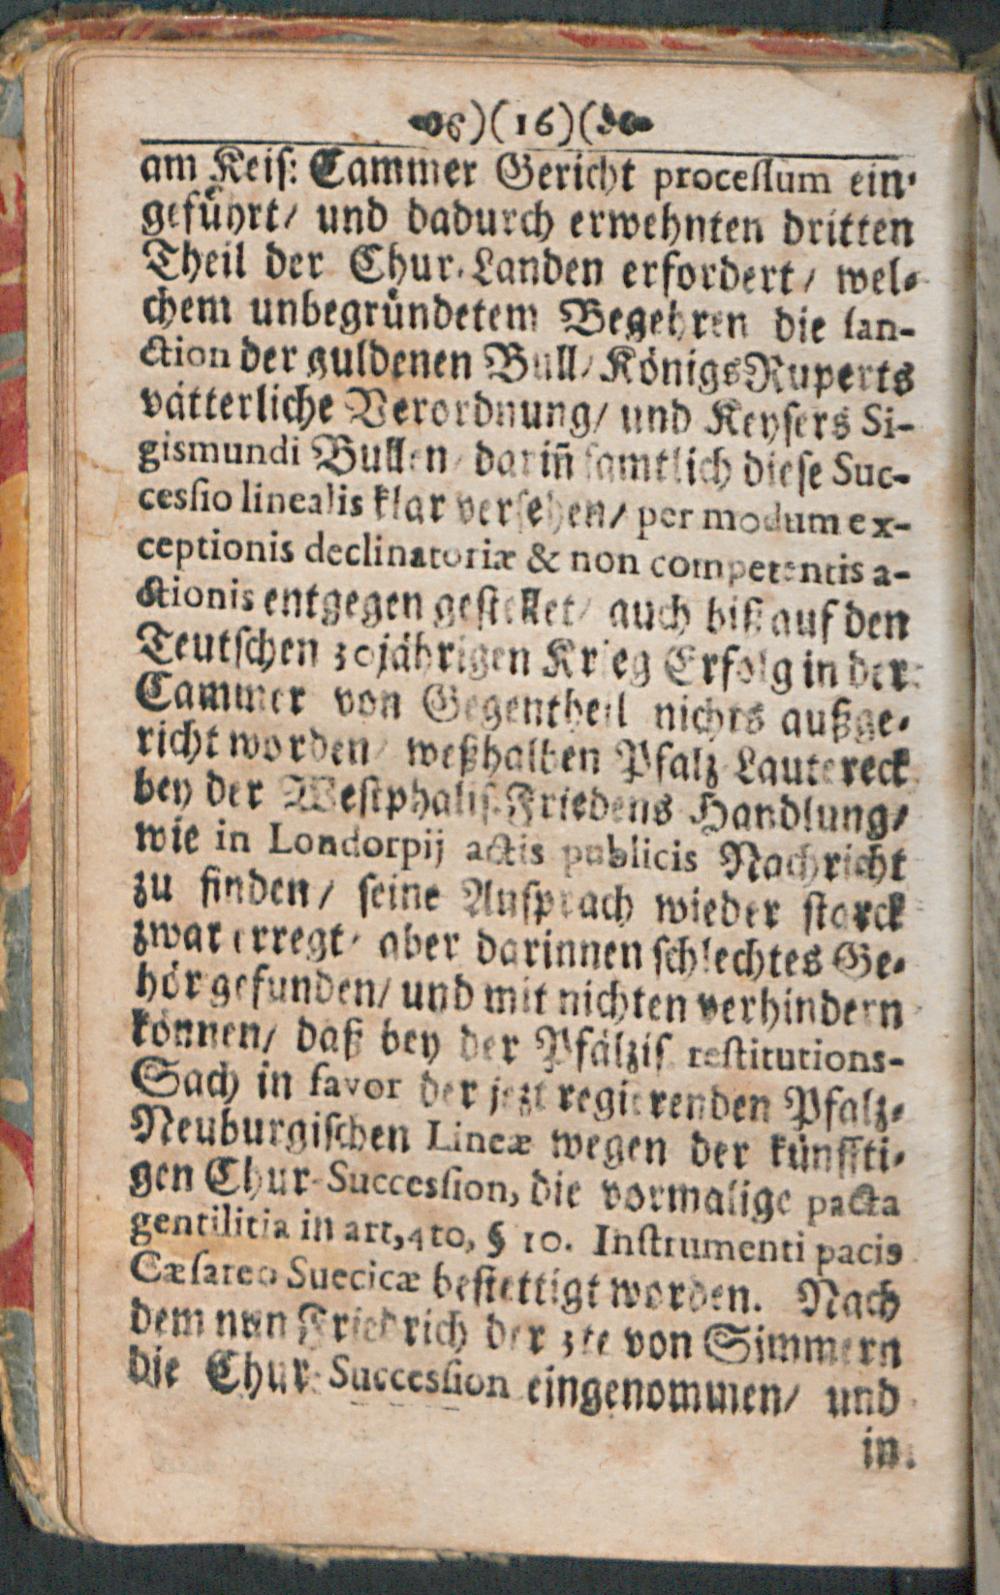 )(16)(
am Keiſ: Cammer Gericht proceſſum ein-
gefuͤhrt/ und dadurch erwehnten dritten
Theil der Chur-Landen erfordert/ wel-
chem unbegruͤndetem Begehren die ſan-
ction der guldenen Bull/ Koͤnigs Ruperts
vaͤtterliche Verordnung/ und Keyſers Si-
gismundi Bullen/ dariñ ſamtlich dieſe Suc-
ceſſio linealis klar verſehen/ per modum ex-
ceptionis declinatoriæ & non competentis a-
ctionis entgegen geſtellet/ auch biß auf den
Teutſchen 30jaͤhrigen Krieg Erfolg in der
Cammer von Gegentheil nichts außge-
richt worden/ weßhalben Pfalz Lautereck
bey der Weſtphaliſ. Friedens Handlung/
wie in Londorpij actis publicis Nachricht
zu finden/ ſeine Anſprach wieder ſtarck
zwar erregt/ aber darinnen ſchlechtes Ge-
hoͤr gefunden/ und mit nichten verhindern
koͤnnen/ daß bey der Pfaͤlziſ. reſtitutions-
Sach in favor der jezt regierenden Pfalz-
Neuburgiſchen Lineæ wegen der kuͤnffti-
gen Chur-Succeſſion, die vormalige pacta
gentilitia in art, 4to, § 10. Inſtrumenti pacis
Cæſareo Suecicæ beſtettigt worden. Nach
dem nun Friedrich der 3te von Simmern
die Chur-Succeſſion eingenommen/ und
in